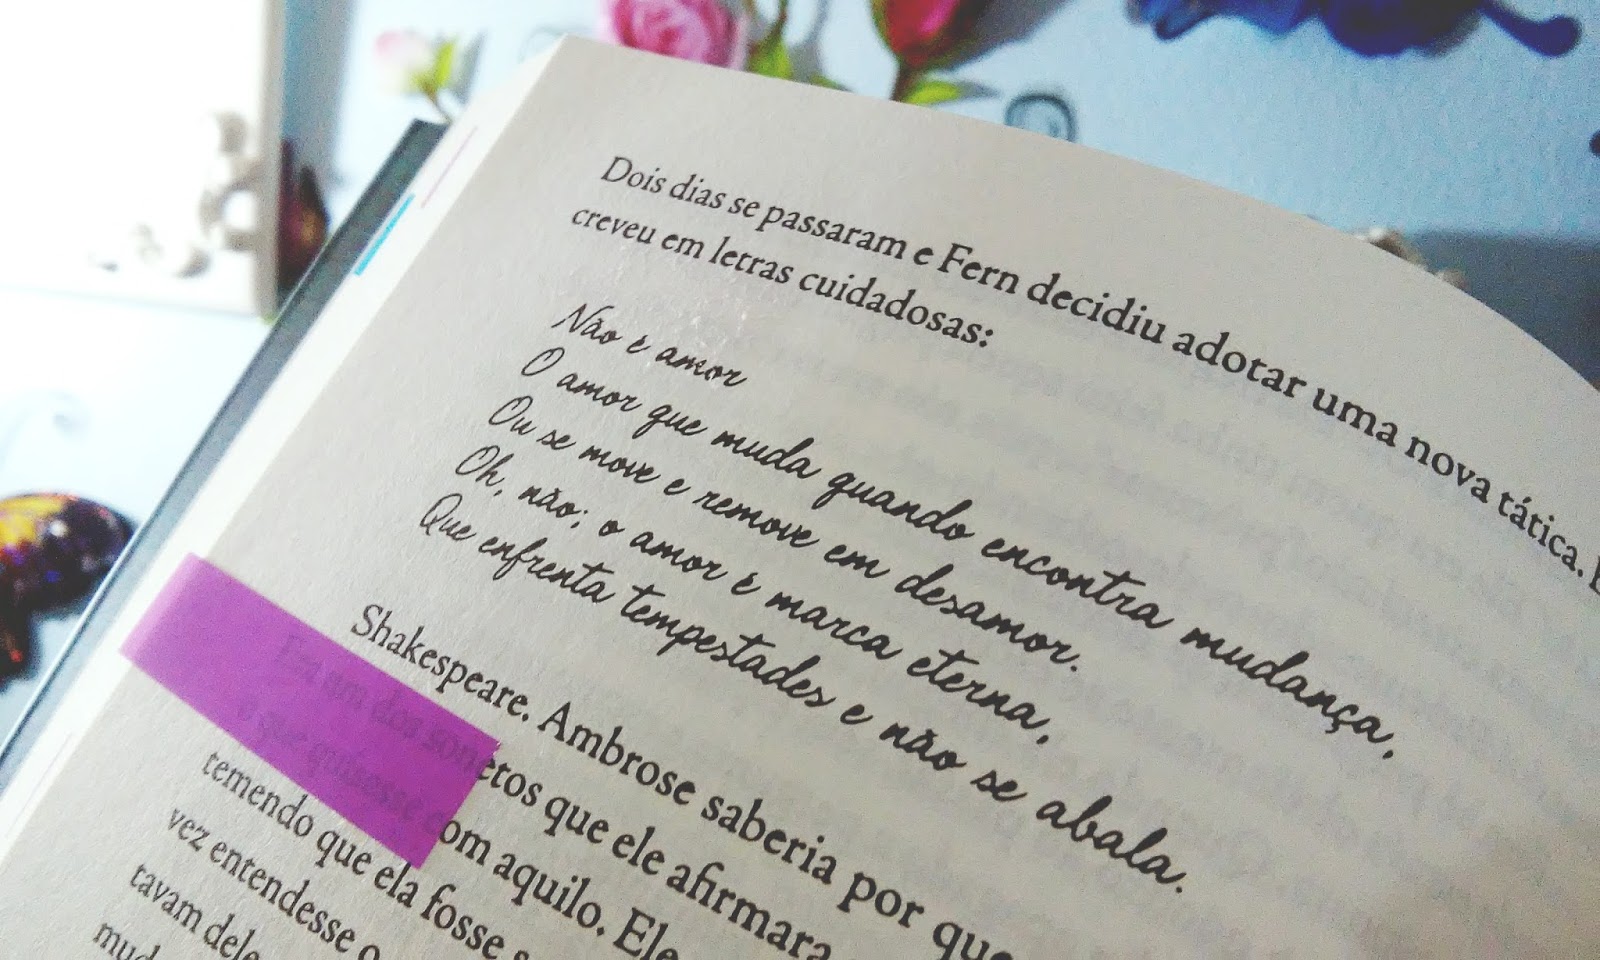 Dois dias se passaram e Fern decidiu adotar uma nova tática. E
creveu em letras cuidadosas:
Não é amor
O amor que muda quando encontra mudança,
Ou se move e remove em desamor.
Oh, não; o amor é marca eterna,
Que enfrenta tempestades e não se abala.
Shakespeare. Ambrose saberia por que
Era um dos sonetos que ele afirmara
o que quisesse com aquilo. Ele
temendo que ela fosse s
vez entendesse o
tavam dele
mud